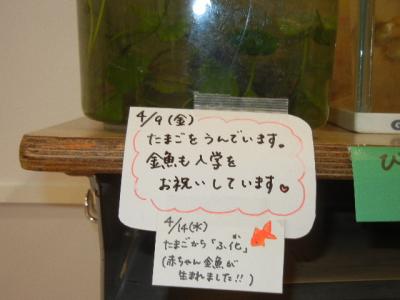 4/9(金)
たまごをうんでいます。
金魚も入学を
お祝いしています♥
4/14(水)
たまごから「ふ化」
(赤ちゃん金魚が
生まれました!!)
び
G